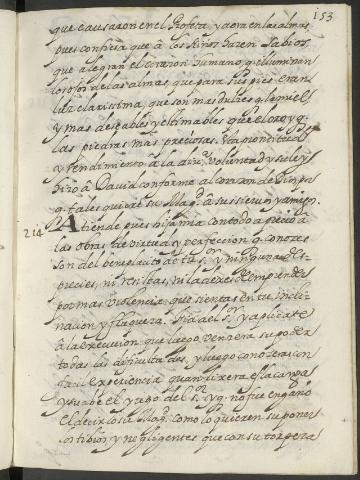 153
que causaron en el Profeta, y a era en las almas
pues confiesa que â los niños hazen sabios,
que alegran el corazon humano, q̃ illuminan
los ojos de las almas, que para sus pies eran
luz clarissima, que son mas dulces q̃ la miel,
y mas deseables y estimables que el oro y q̃
las piedras mas preciosas. Esta prontitud
y rendimiento â la divª voluntad y su ley
hizo â David conforme al corazon de Dios pa
q̃ tales quiere su Magᵈ a sus siervos y amigos.
214
Atiende pues hija mia con todo aprecio â
las obras de virtud y perfeccion q̃ conoces
son del beneplacito de tu Sʳ y ninguna des-
precies, ni resistas, ni la dexes de emprender
por mas violencia que sientas en tu incli-
nacion y flaqueza. Fia del Sʳ y aplicate
â la execucion que luego vencera su poder
todas las dificultades, y luego conoceras con
facil experiencia quan ligera es la carga
y suabe el yugo del Sʳ y q̃ no fue engaño
el decirlo su Magᵈ como lo quieren suponer
los tibios, y negligentes que con su torpeza